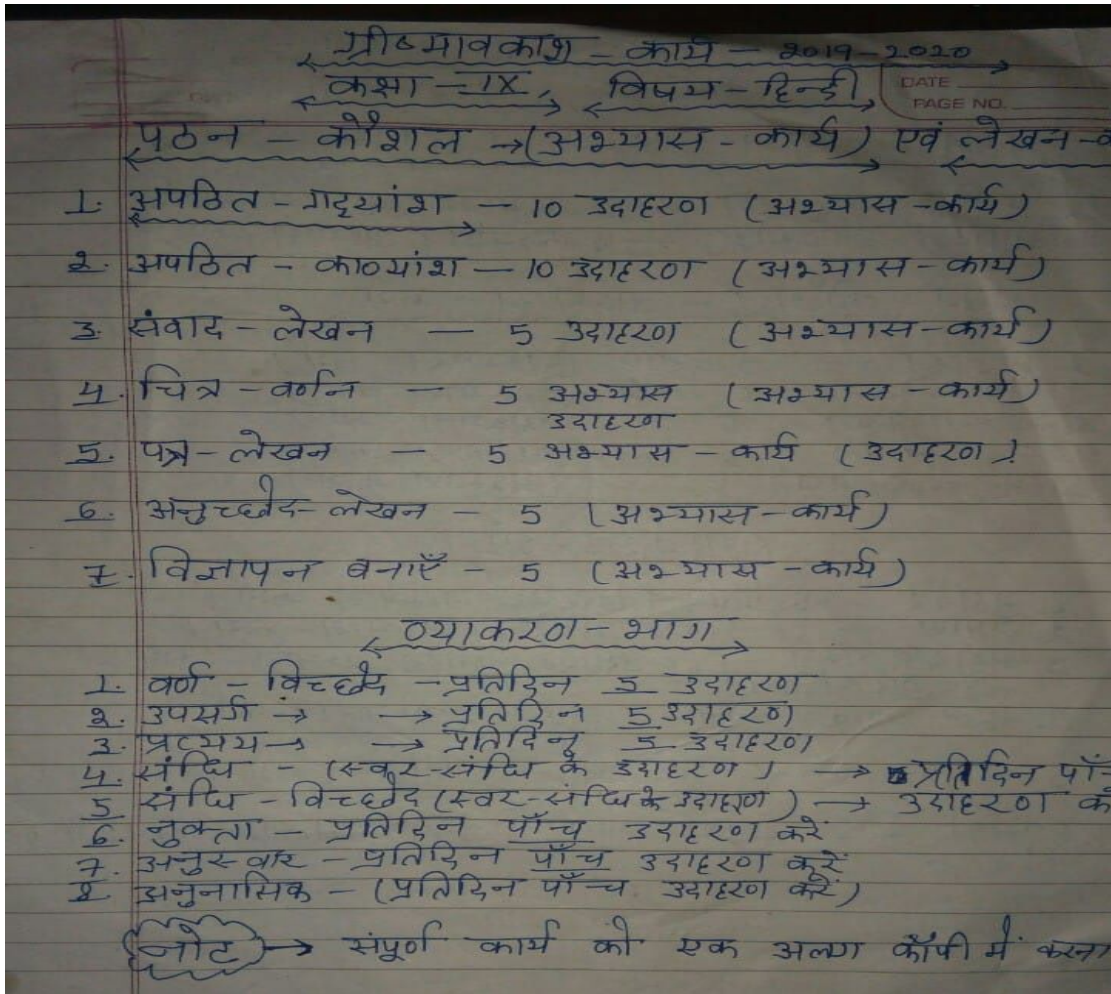 ग्रीष्मावकाश - कार्य - 2019-2020
कक्षा - IX, विषय - हिन्दी
DATE
PAGE NO.
पठन - कौशल → (अभ्यास - कार्य) एवं लेखन -
1. अपठित - गद्यांश - 10 उदाहरण (अभ्यास - कार्य)
2. अपठित - काव्यांश - 10 उदाहरण (अभ्यास - कार्य)
3. संवाद - लेखन - 5 उदाहरण (अभ्यास - कार्य)
4. चित्र - वर्णन - 5 अभ्यास (अभ्यास - कार्य)
उदाहरण
5. पत्र - लेखन - 5 अभ्यास - कार्य (उदाहरण)
6. अनुच्छेद - लेखन - 5 (अभ्यास - कार्य)
7. विज्ञापन बनाएँ - 5 (अभ्यास - कार्य)
व्याकरण - भाग
1. वर्ण - विच्छेद - प्रतिदिन 5 उदाहरण
2. उपसर्ग → → प्रतिदिन 5 उदाहरण
3. प्रत्यय → → प्रतिदिन 5 उदाहरण
4. संधि - (स्वर-संधि के उदाहरण) → प्रतिदिन
5 संधि - विच्छेद (स्वर-संधि के उदाहरण) → उदाहरण
6. नुक्ता - प्रतिदिन पाँच उदाहरण करें
7. अनुस्वार - प्रतिदिन पाँच उदाहरण करें
8 अनुनासिक - (प्रतिदिन पाँच उदाहरण करें)
नोट → संपूर्ण कार्य को एक अलग कॉपी में करना